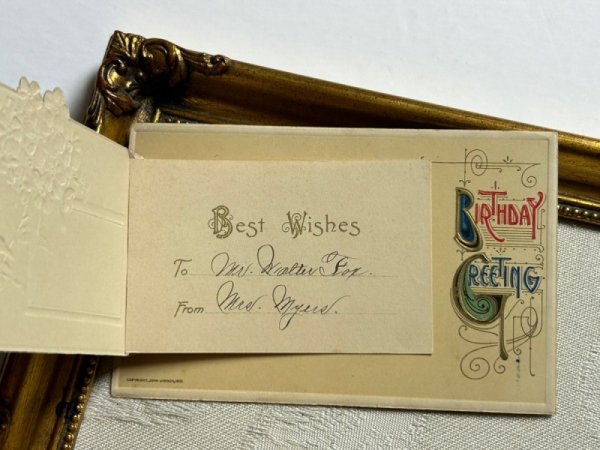 Best Wishes
To Mr. Walter Fox.
From Mrs. Myers.
BIRTHDAY
GREETING
COPYRIGHT, JOHN WINSCH,